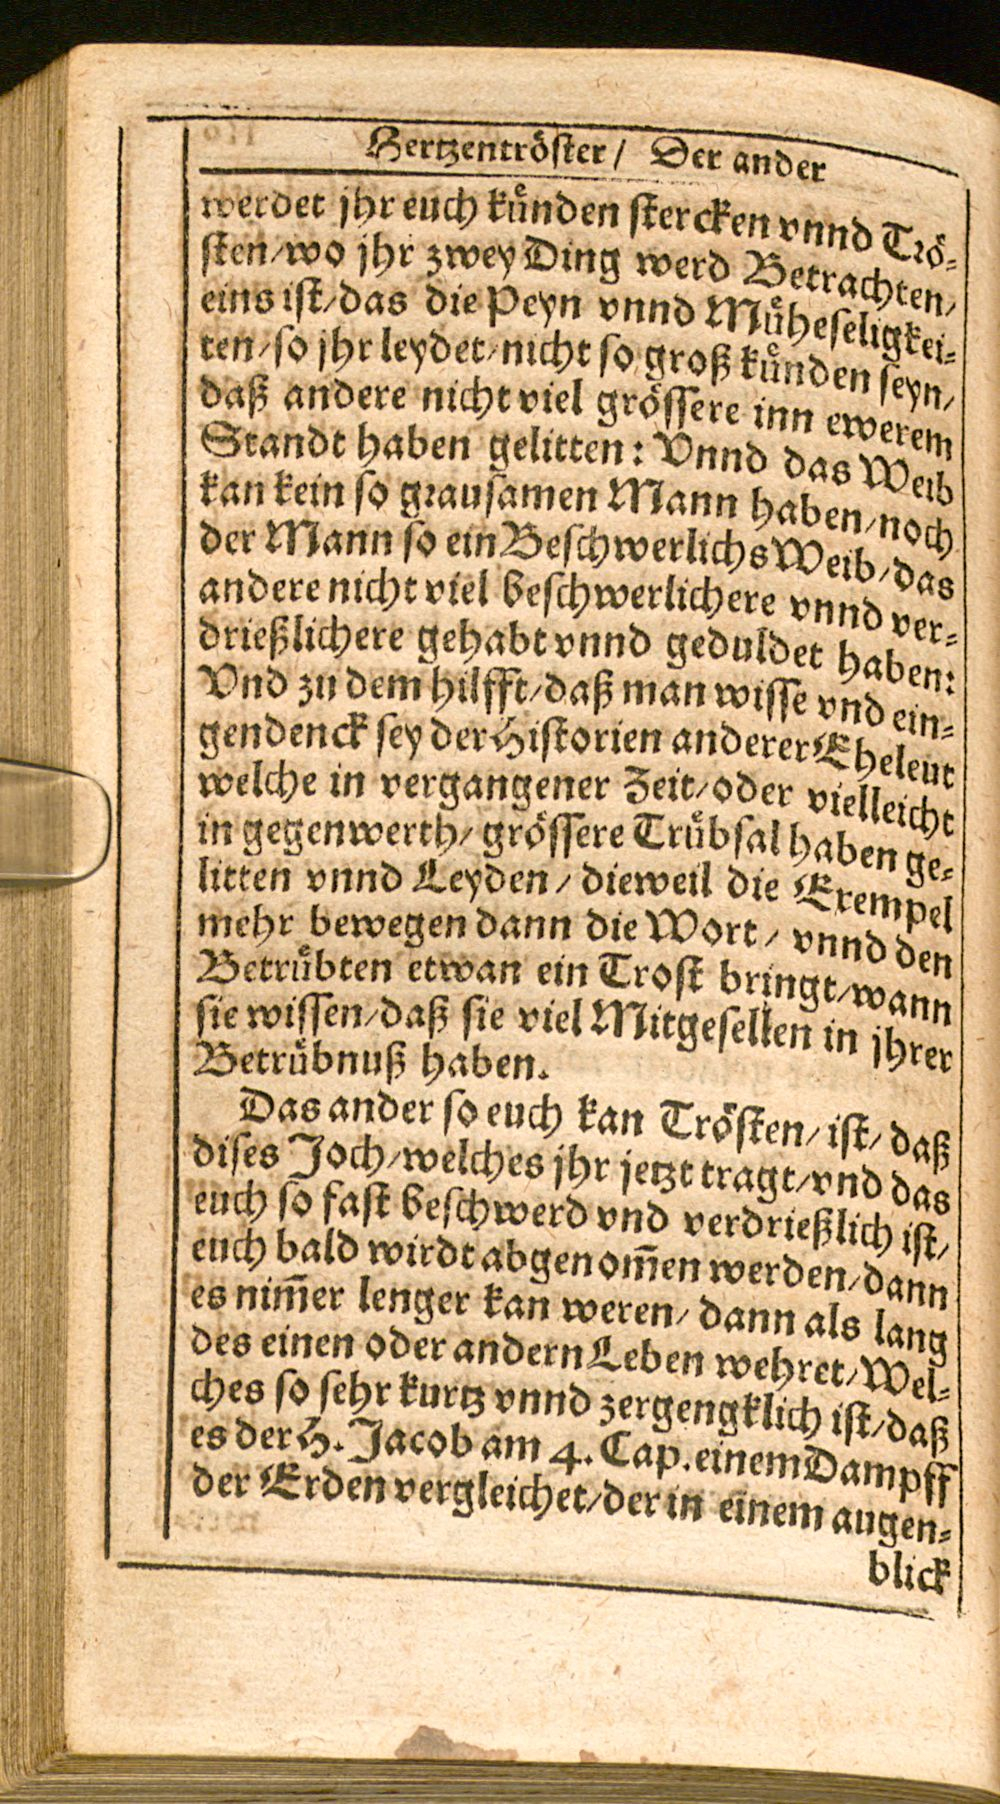 Hertzentröster / Der ander
werdet jhr euch kuͤnden stercken vnnd Troͤ-
sten/wo jhr zwey Ding werd Betrachten/
eins ist/das die Peyn vnnd Muͤheseligkei-
ten/so jhr leydet/nicht so groß kuͤnden seyn/
daß andere nicht viel groͤssere inn ewerem
Standt haben gelitten: Vnnd das Weib
kan kein so grausamen Mann haben/noch
der Mann so ein Beschwerlichs Weib/das
andere nicht viel beschwerlichere vnnd ver-
drießlichere gehabt vnnd geduldet haben:
Vnd zu dem hilfft/daß man wisse vnd ein-
gendenck sey der Historien anderer Eheleut
welche in vergangener Zeit/oder vielleicht
in gegenwerth/ groͤssere Truͤbsal haben ge-
litten vnnd Leyden/ dieweil die Exempel
mehr bewegen dann die Wort/ vnnd den
Betruͤbten etwan ein Trost bringt/wann
sie wissen/daß sie viel Mitgesellen in jhrer
Betruͤbnuß haben.
Das ander so euch kan Troͤsten/ist/ daß
dises Joch/welches jhr jetzt tragt/vnd das
euch so fast beschwerd vnd verdrießlich ist/
euch bald wirdt abgenom̄en werden/dann
es nim̄er lenger kan weren/ dann als lang
des einen oder andern Leben wehret/Wel-
ches so sehr kurtz vnnd zergengklich ist/daß
es der H. Jacob am 4. Cap. einem Dampff
der Erden vergleichet/der in einem augen-
blick